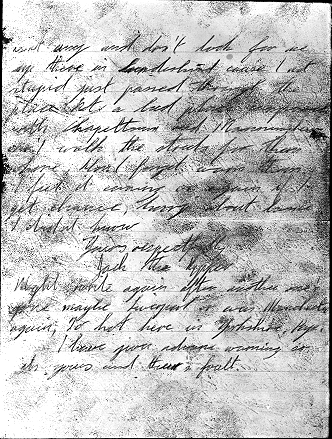 and don't look for me
up there in Sunderland cause I not
stupid just passed through the
place not a bad place
with Chapeltown and Manningham
can't walk the streets for them
Don't forget warn them
I feel it coming on again if I
get chance, Sorry about
I didn't know
Yours respectfully
Jack the Ripper
Might write again after another one's
gone maybe Liverpool or even Manchester
again, To hot here in Yorkshire, Bye.
I have given advance warning so
its yours and their's fault.